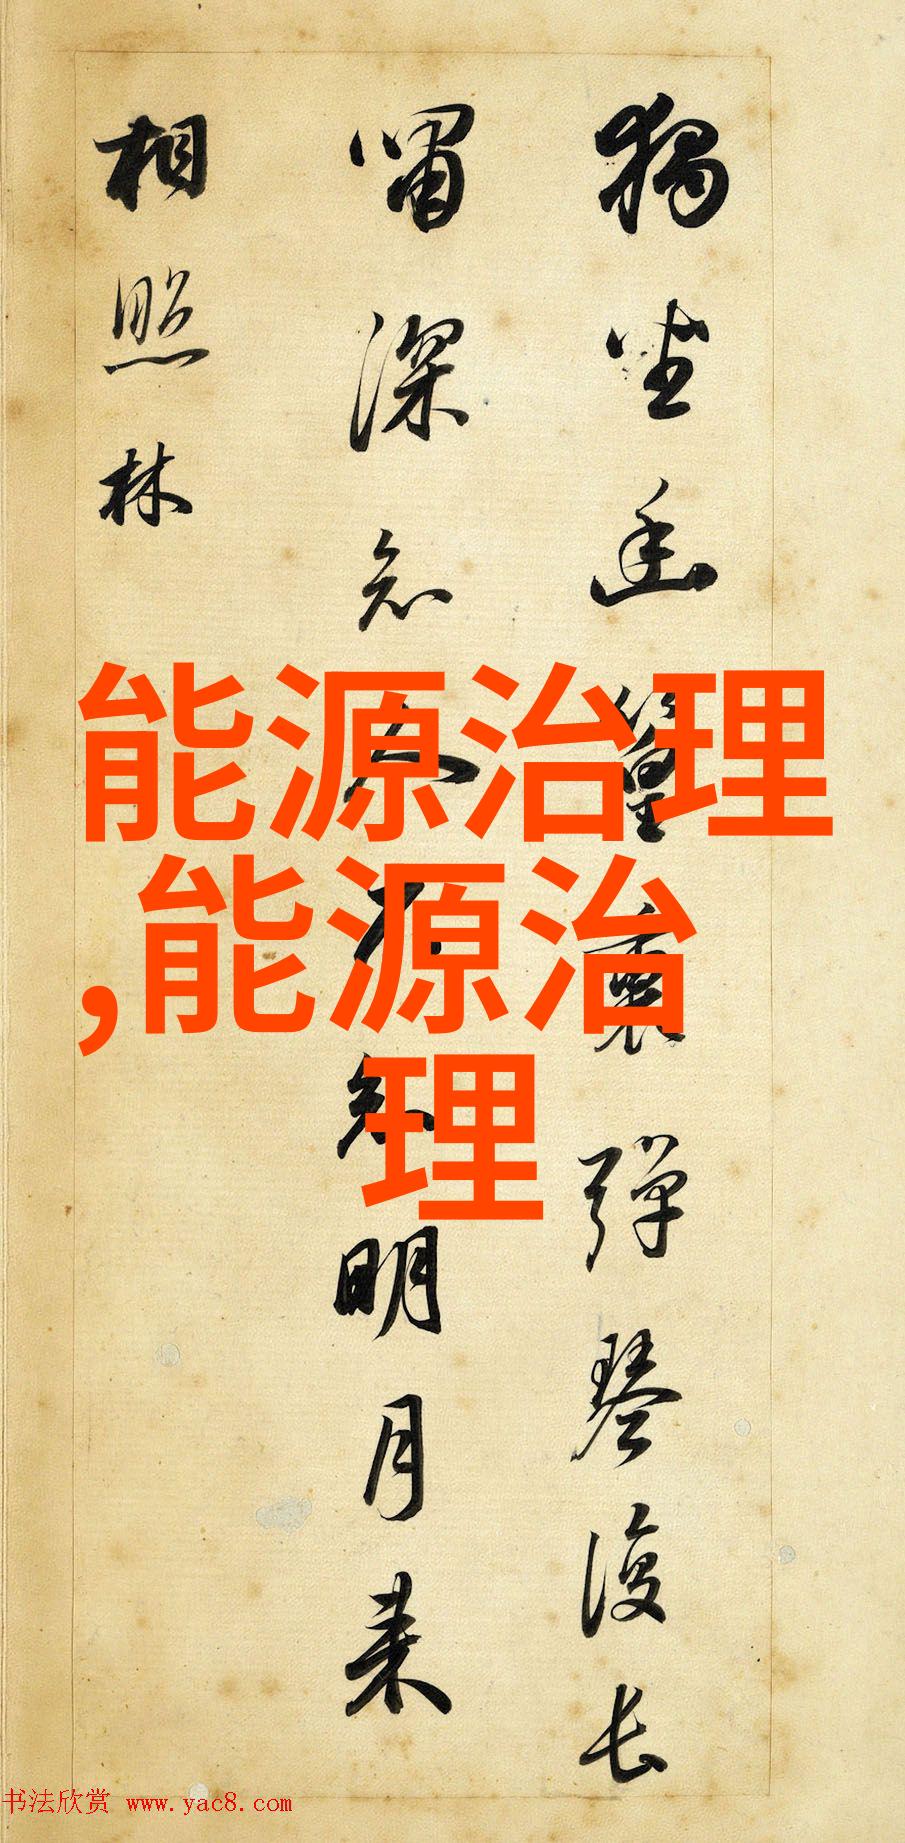 獨坐幽篁裏彈琴復長
嘯深知人不知明月来
相照林
能源治理
,能源治
理
书法欣赏 www.yac8.com